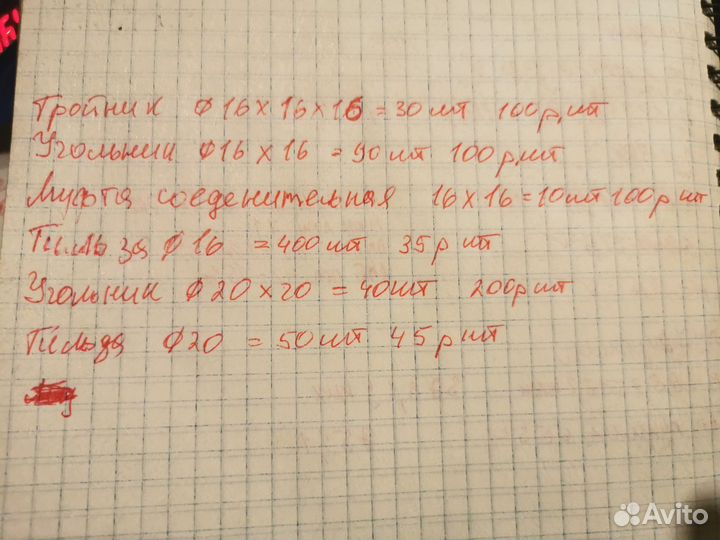 Тройник ф16х16х16 = 30шт 100р,шт
Угольник ф16х16 = 90шт 100р,шт
Муфта соеденительная 16х16=10шт 100р шт
Гильза ф16 = 400шт 35р шт
Угольник ф20х20 = 40шт 200р шт
Гильда ф20 = 50шт 45р шт
Avito